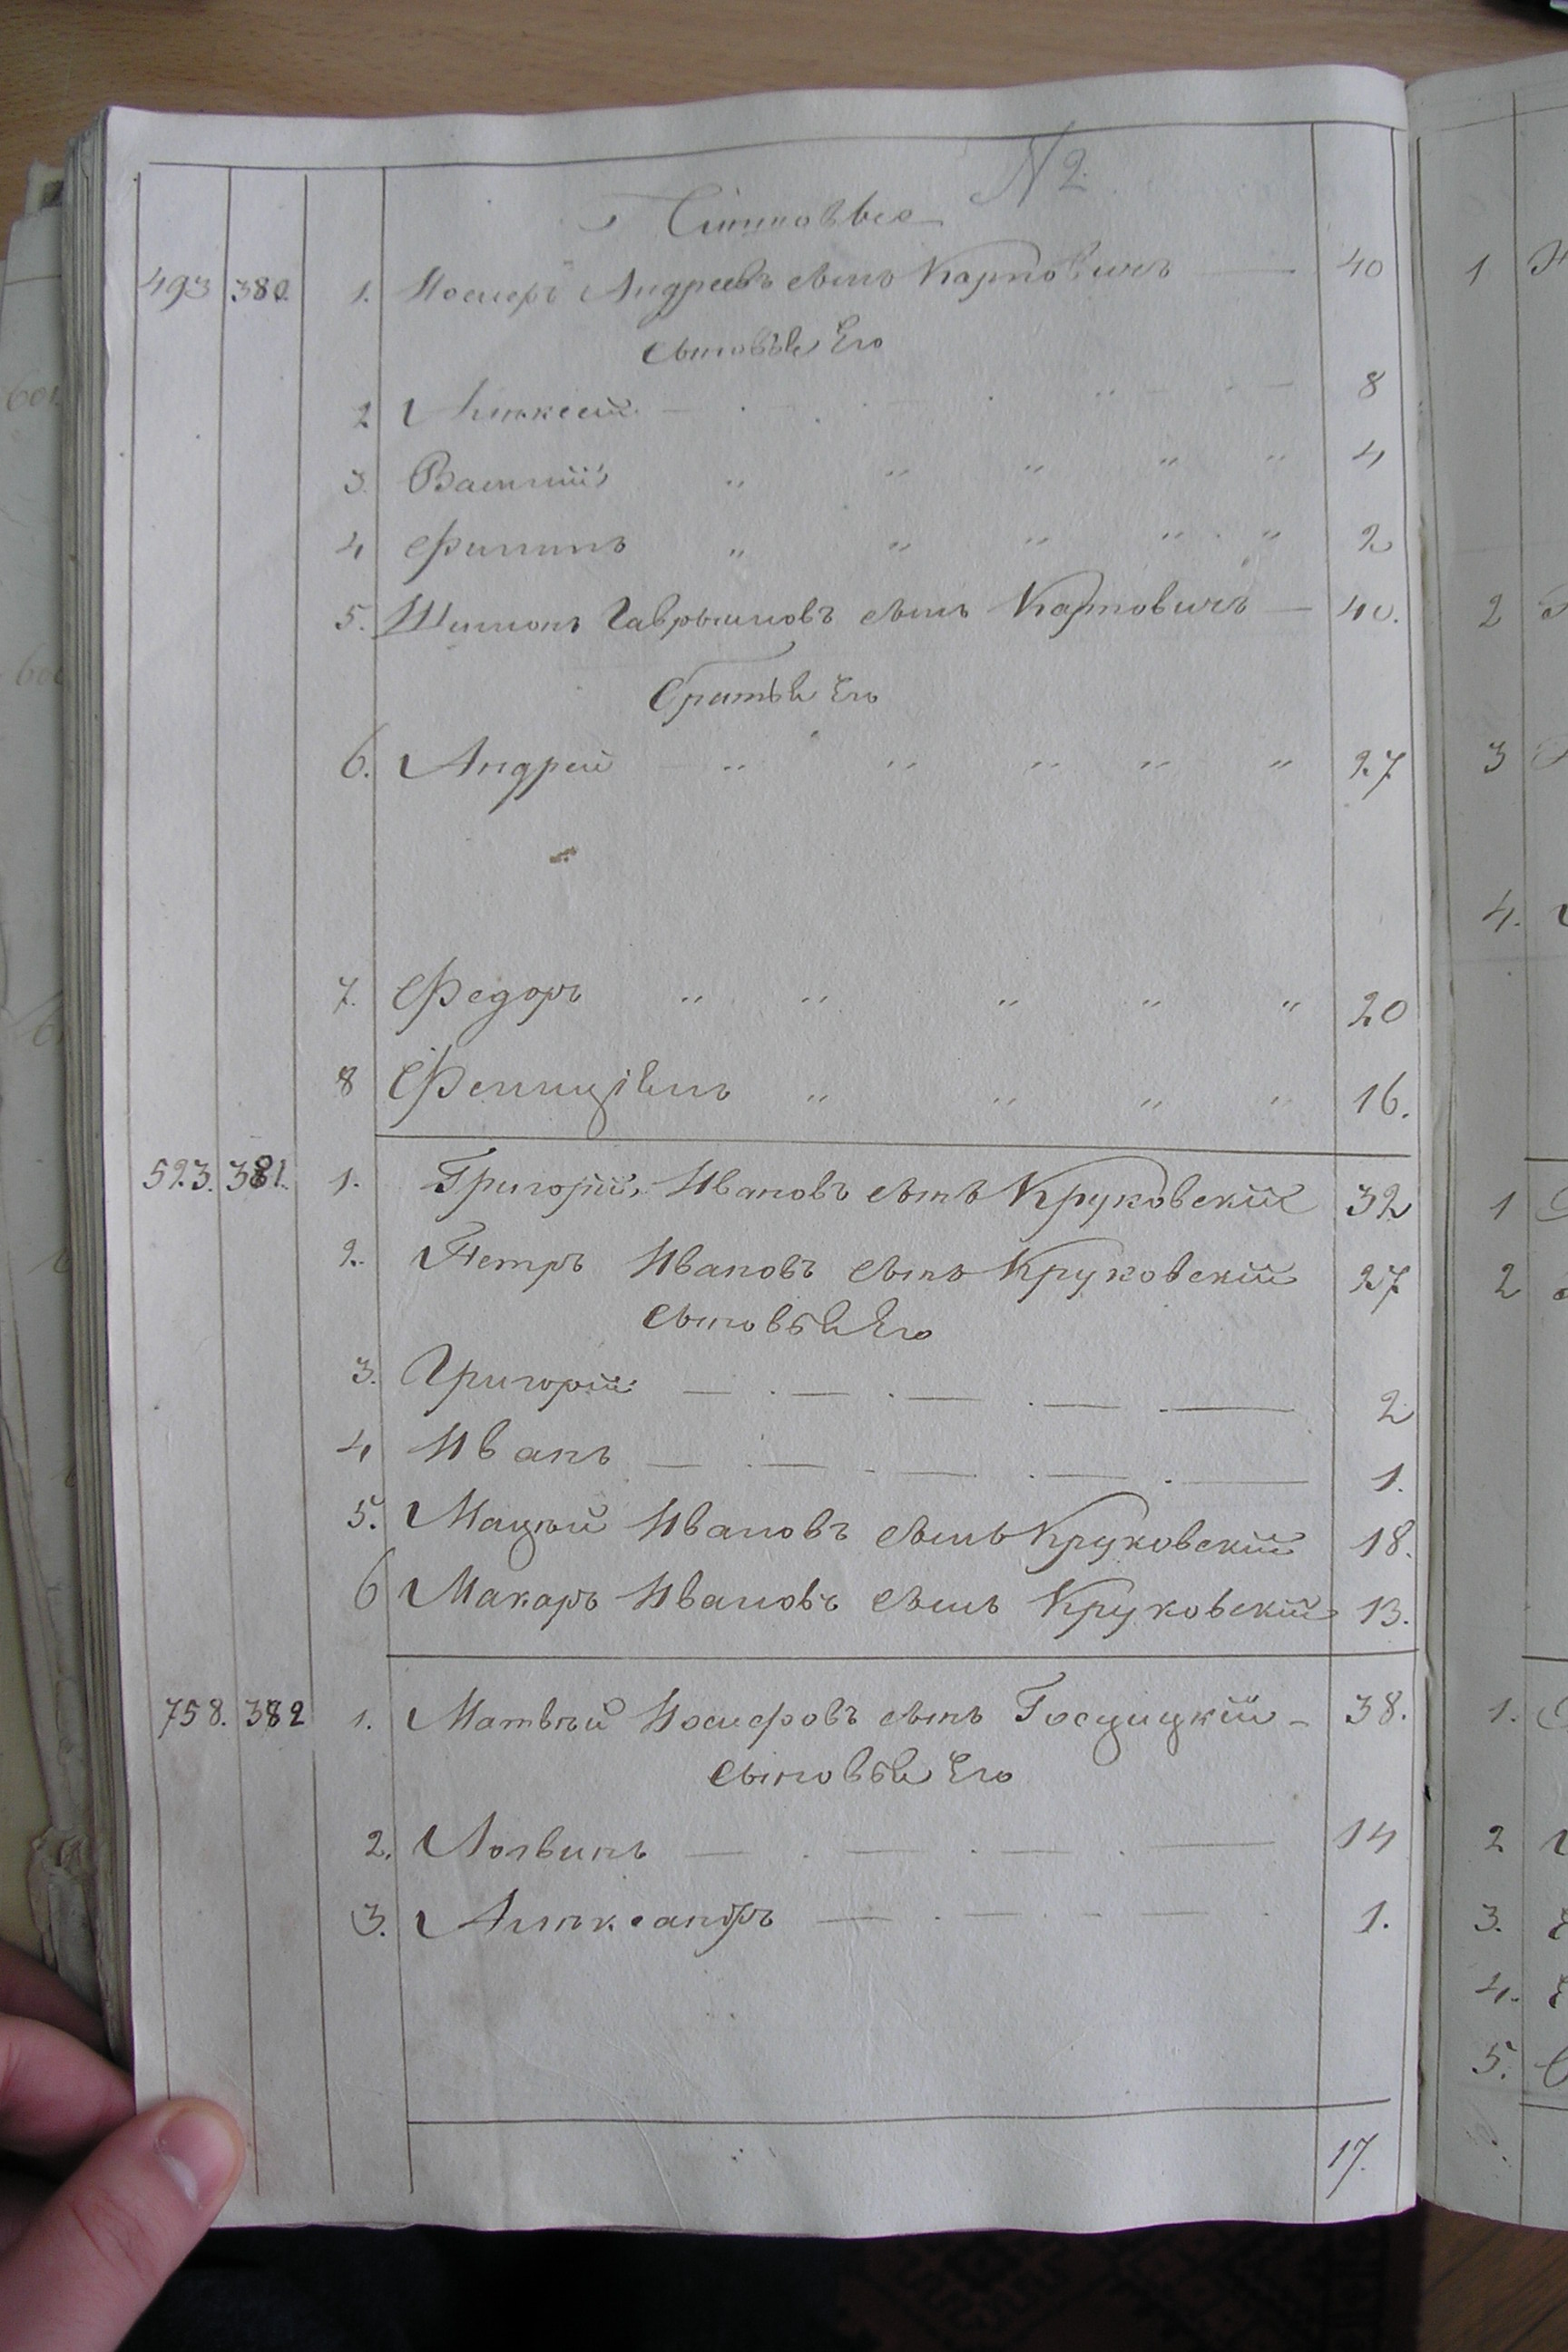 N 2
493 380 1. Иосифъ Андреевъ сынъ Карповичъ 40
сыновья Его
2 Алѣксей 8
3. Василий 4
4 Филипъ 2
5. Шимонъ Гаврыиловъ сынъ Карповичъ 40.
Братья Его
6. Андрей 27
7. Федоръ 20
8 Фелицiянъ 16.
523. 381. 1. Григорiй Ивановъ сынъ Круковскiй 32
2. Петръ Ивановъ сынъ Круковскiй 27
сыновья Его
3. Григорiй 2
4 Иванъ 1.
5. Мацѣй Ивановъ сынъ Круковскiй 18.
6 Макаръ Ивановъ сынъ Круковскiй 13.
758. 382 1. Матвѣй Иосифовъ сынъ Госцицкiй 38.
сыновья Его
2. Логвинъ 14
3. Алѣксандръ 1.
17.
1
2
3
4.
1
2
1.
2
3.
4.
5.